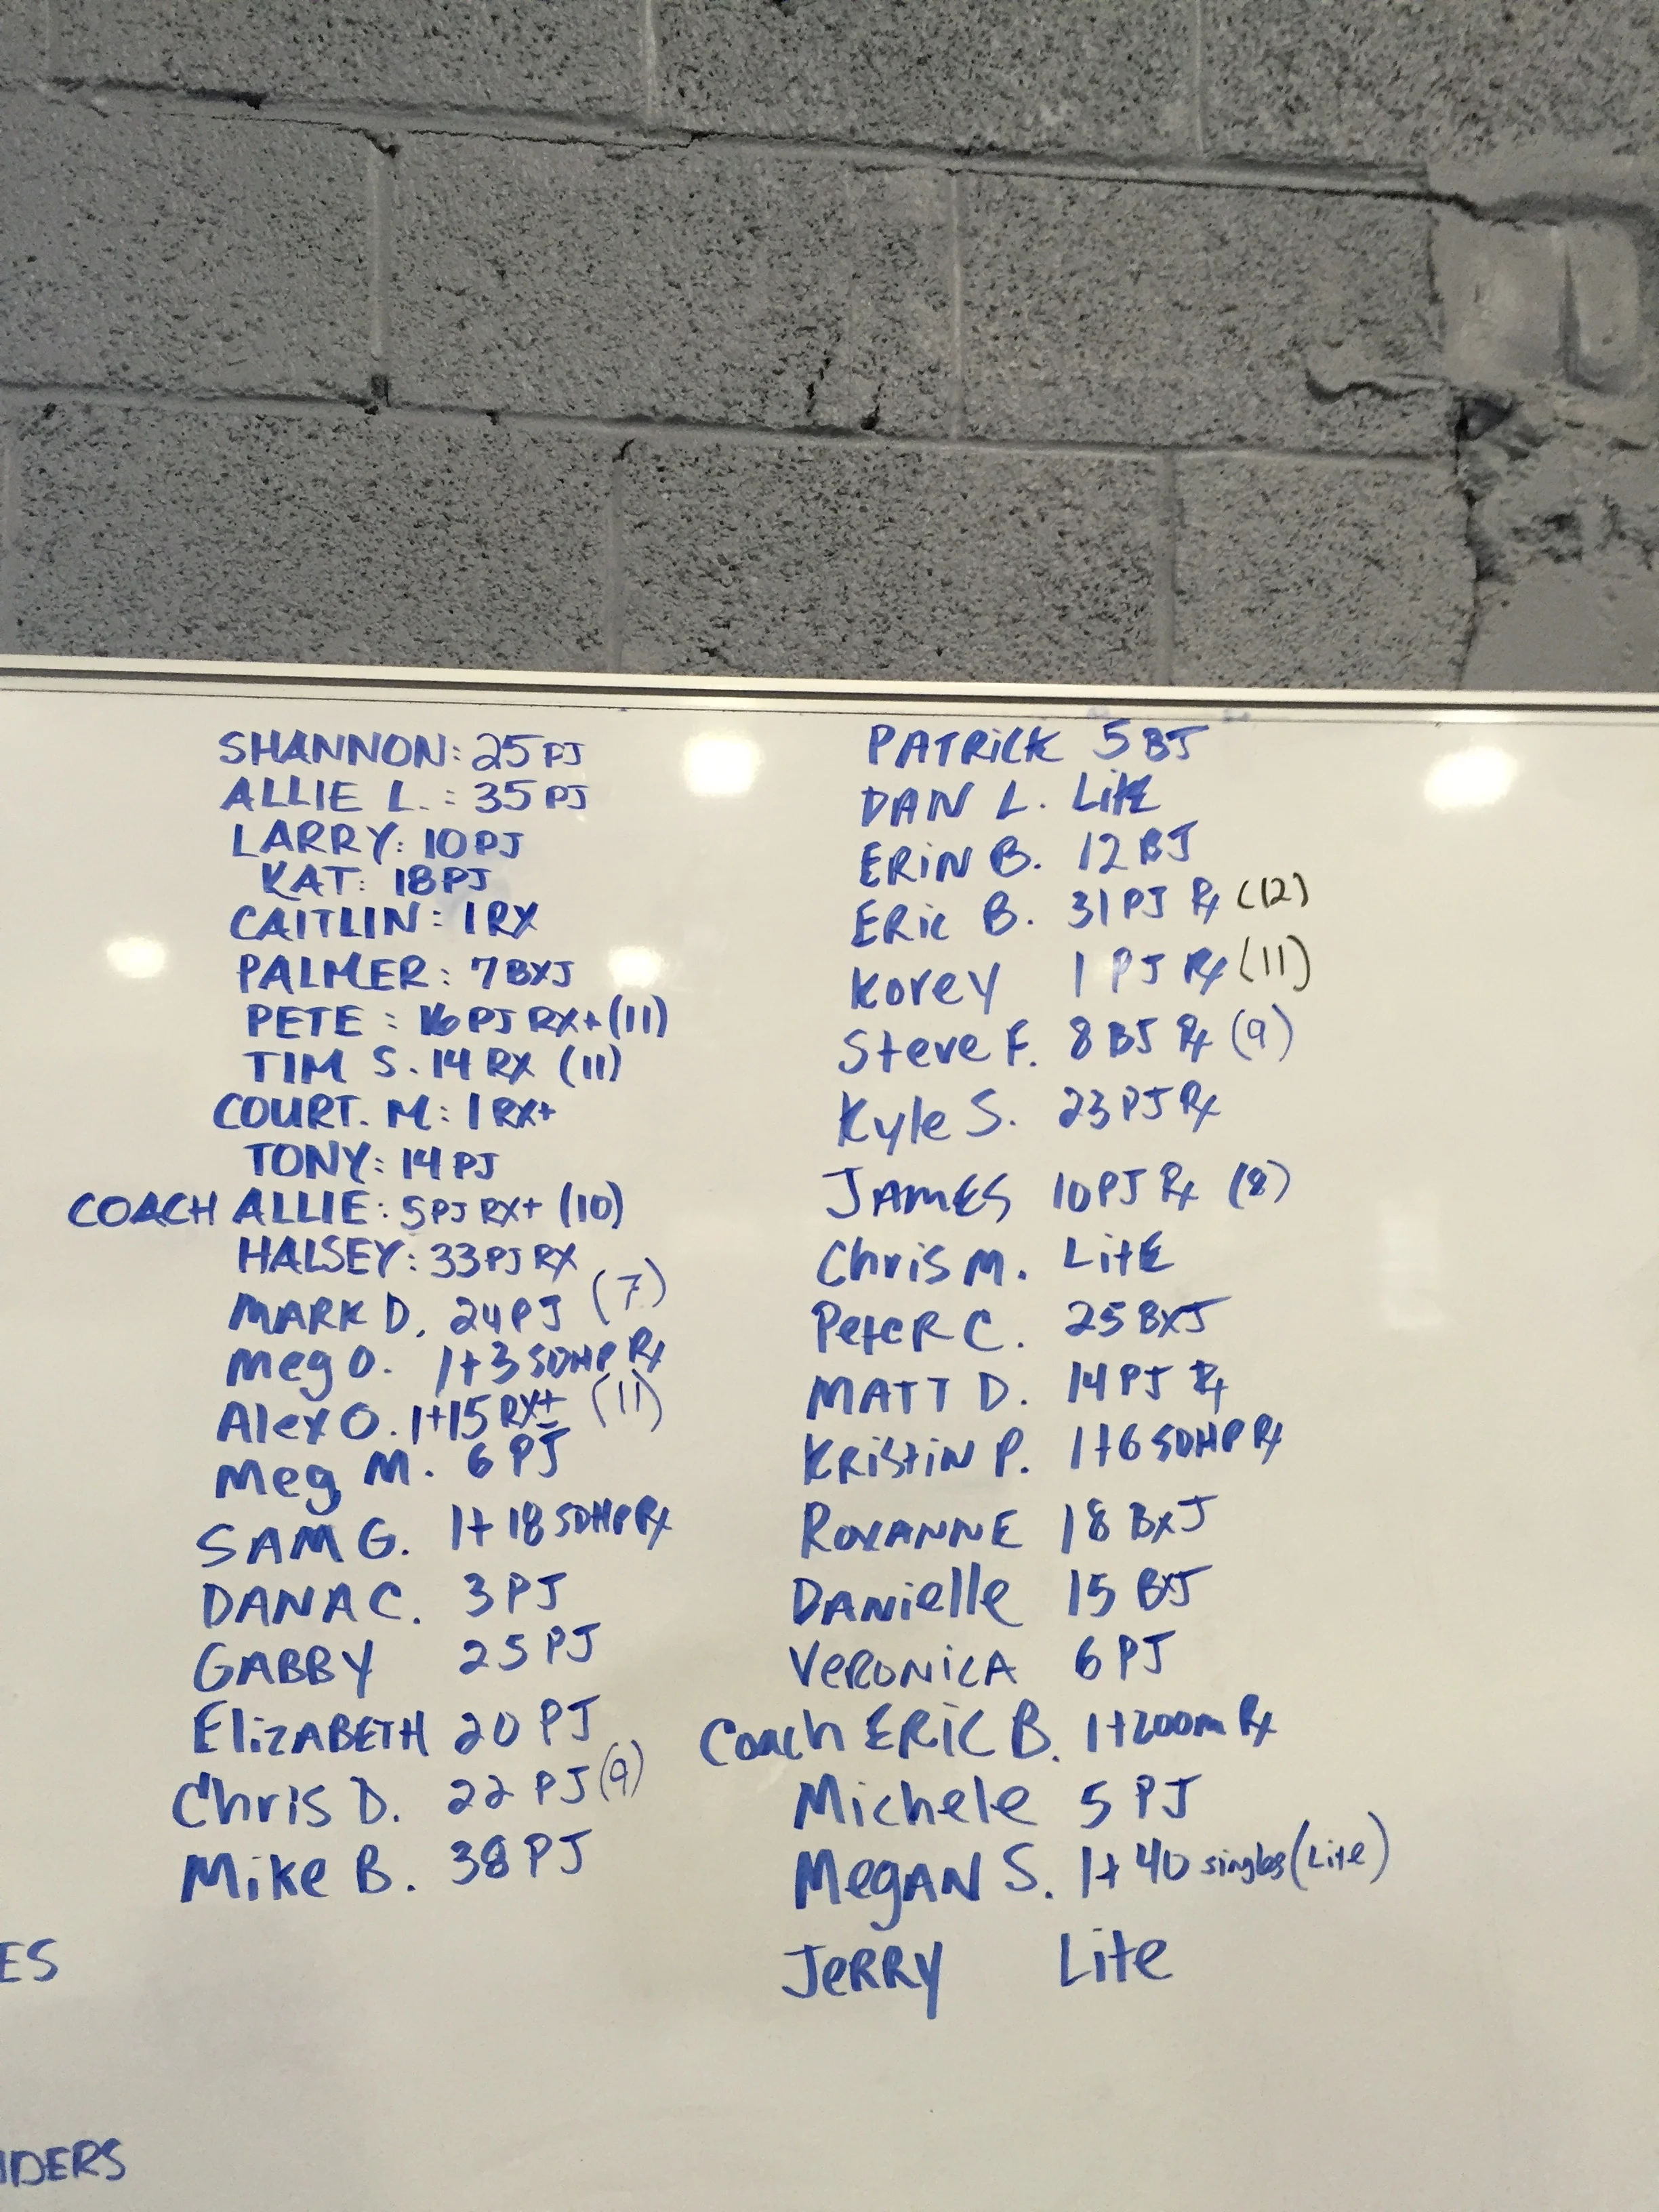 SHANNON: 25 PJ
ALLIE L. : 35 PJ
LARRY: 10 PJ
KAT: 18 PJ
CAITLIN: 1 RX
PALMER: 7 BXJ
PETE : 16 PJ RX+ (11)
TIM S. 14 RX (11)
COURT. M: 1 RX+
TONY: 14 PJ
COACH ALLIE: 5 PJ RX+ (10)
HALSEY: 33 PJ RX
MARK D. 24 PJ (7)
Meg O. 1+3 SDHP Rx
Alex O. 1+15 RX+ (11)
Meg M. 6 PJ
SAM G. 1+18 SDHP Rx
DANA C. 3 PJ
GABBY 25 PJ
ElizABETH 20 PJ
Chris D. 22 PJ (9)
Mike B. 38 PJ
ES
IDERS
PATRICK 5 BJ
DAN L. LitE
ERiN B. 12 BJ
ERic B. 31 PJ Rx (12)
Korey 1 PJ Rx (11)
Steve F. 8 BJ Rx (9)
Kyle S. 23 PJ Rx
JAMES 10 PJ Rx (8)
Chris M. LitE
PeteR C. 25 BxJ
MATT D. 14 PJ Rx
KRiStiN P. 1+6 SDHP Rx
ROXANNE 18 BxJ
DANielle 15 BxJ
VeRONiCA 6 PJ
Coach ERIC B. 1+200m Rx
Michele 5 PJ
MegAN S. 1+40 singles (Lite)
JeRRY Lite